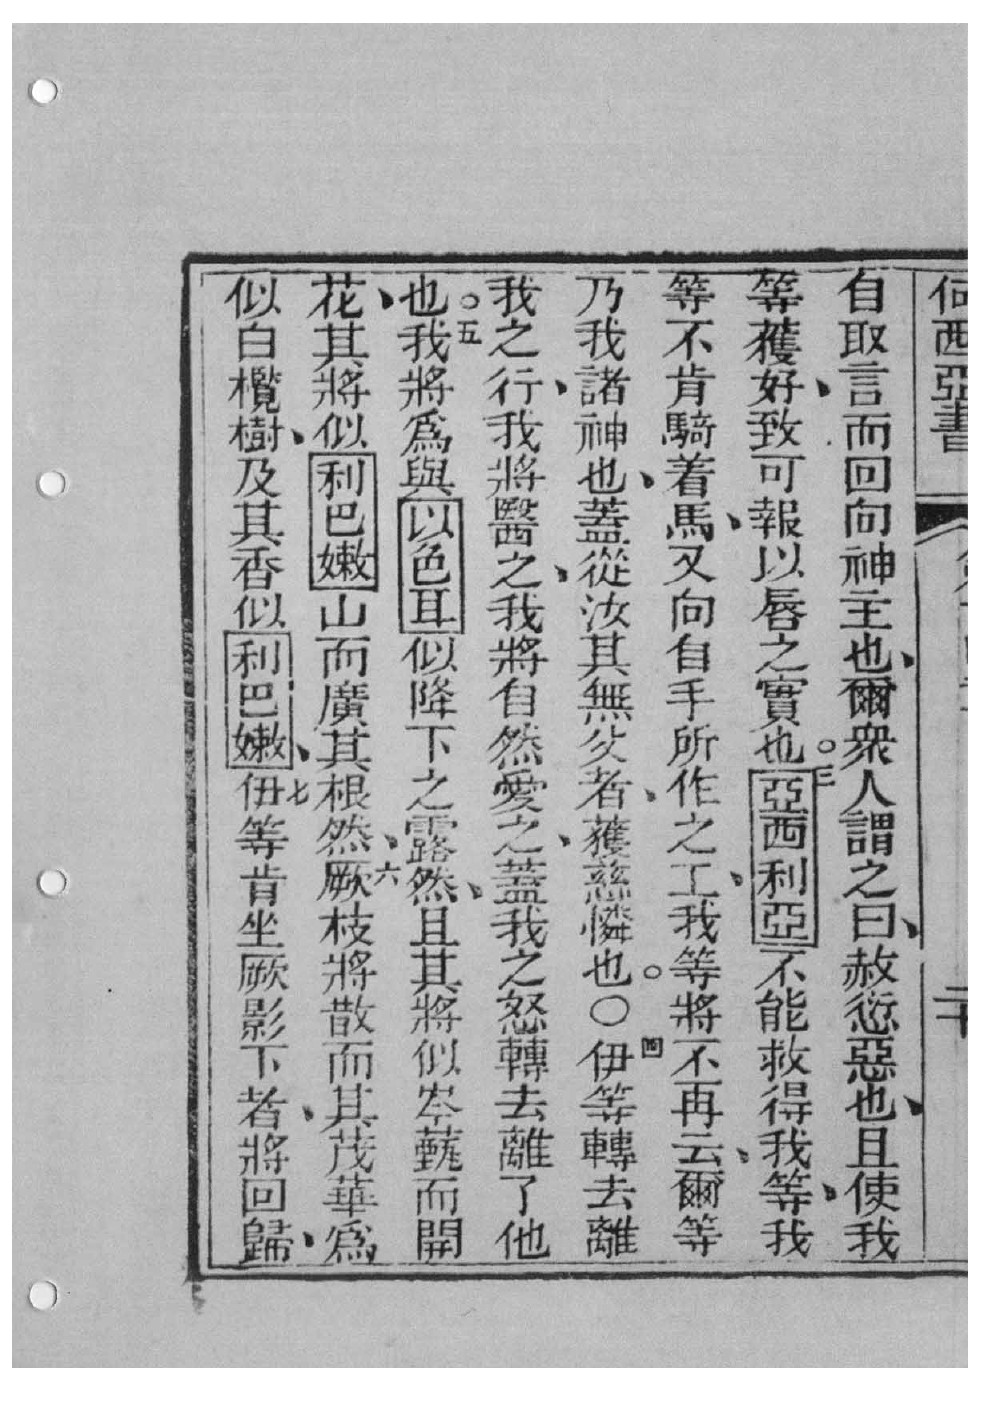 何西亞書 二十
自取言而回向神主也、爾衆人謂之曰、赦愆惡也、且使我
等蒦好、致可報以唇之實也。三亞西利亞不能救得我等、我
等不肯騎着馬、又向自手所作之工、我等將不再云、爾等
乃我諸神也、蓋從汝其無父者、蒦慈憐也。〇四伊等轉去離
我之行、我將醫之、我將自然愛之、蓋我之怒轉去離了他
也。五我將爲與以色耳似降下之露然、且其將似岺蕣而開
花、其將似利巴嫩山而廣其根然、六厥枝將散而其茂華爲
似白欖樹、及其香似利巴嫩、七伊等肯坐厥影下者、將回歸、